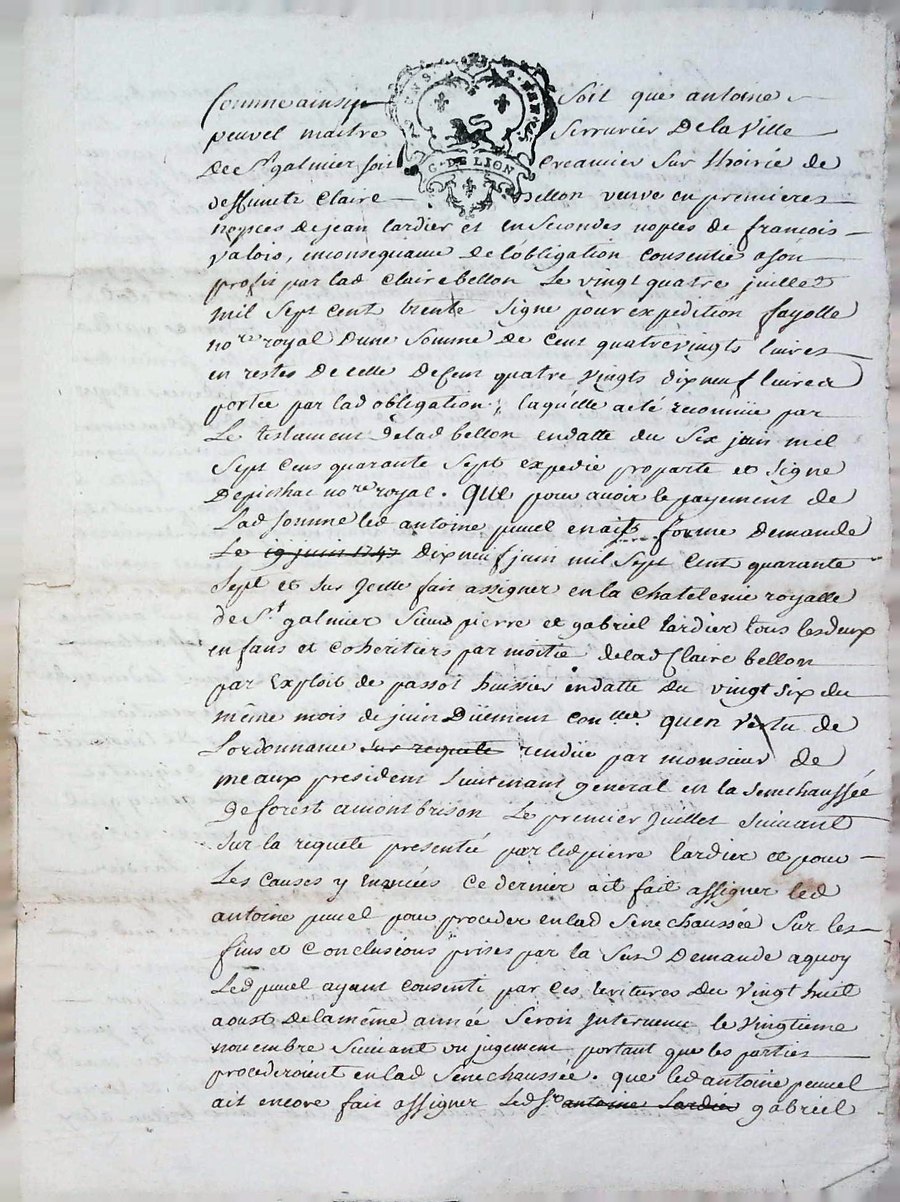 Comme ainsy Soit que antoine
peuvel maitre Serrurier De la Ville
De St galmier soit Creancier Sur lhoirie de
deffunte Claire bellon veuve en premieres
nopces de jean Lardier et en Secondes nopces de francois
valois, inconsequance de lobligation consentie a son
profit par lad Claire bellon Le vingt quatre juillet
mil Sept Cent trente Signe pour expedition fayolle
nore royal D'une Somme De Cent quatre vingts livres
en restes De celle De Cent quatre vingts dix neuf livres
portee par lad obligation, laquelle a eté reconnüe par
Le testament De lad bellon en datte du Six juin mil
Sept Cens quarante Sept expedie proparte et Signe
nore royal. Que pour avoir le payement de
Lad Somme led antoine peuvel en a forme Demande
Le 19 juin 1747 dix neuf juin mil Sept Cent quarante
Sept et Sur Jcelle fait assigner en la Chatelenie royalle
de St galmier Sieurs pierre et gabriel Lardier tous les deux
enfans et Coheritiers par moitie de lad Claire bellon
par Exploit de passot huissier en datte du vingt Six du
même mois de juin Düement conllé quen vertu de
Lordonnance sur requete rendüe par monsieur de
meaux president Lieutenant general en la Senechaussée
De forest a montbrison Le premier Juillet Suivant
Sur la requete presentée par led pierre Lardier et pour
Les Causes y enoncées Ce dernier ait fait assigner led
antoine peuvel pour proceder en lad Senechaussée Sur les
fins et Conclusions prises par la Sus Demande a quoy
Led peuvel ayant Consenti par Ses Ecritures du Vingt huit
aoust De la même année Seroit Intervenu le Vingtieme
novembre Suivant un jugement portant que les parties
procederoient en lad Senechaussée. que led antoine peuvel
ait encore fait assigner Led Sr antoine Lardier gabriel
G. DE LION